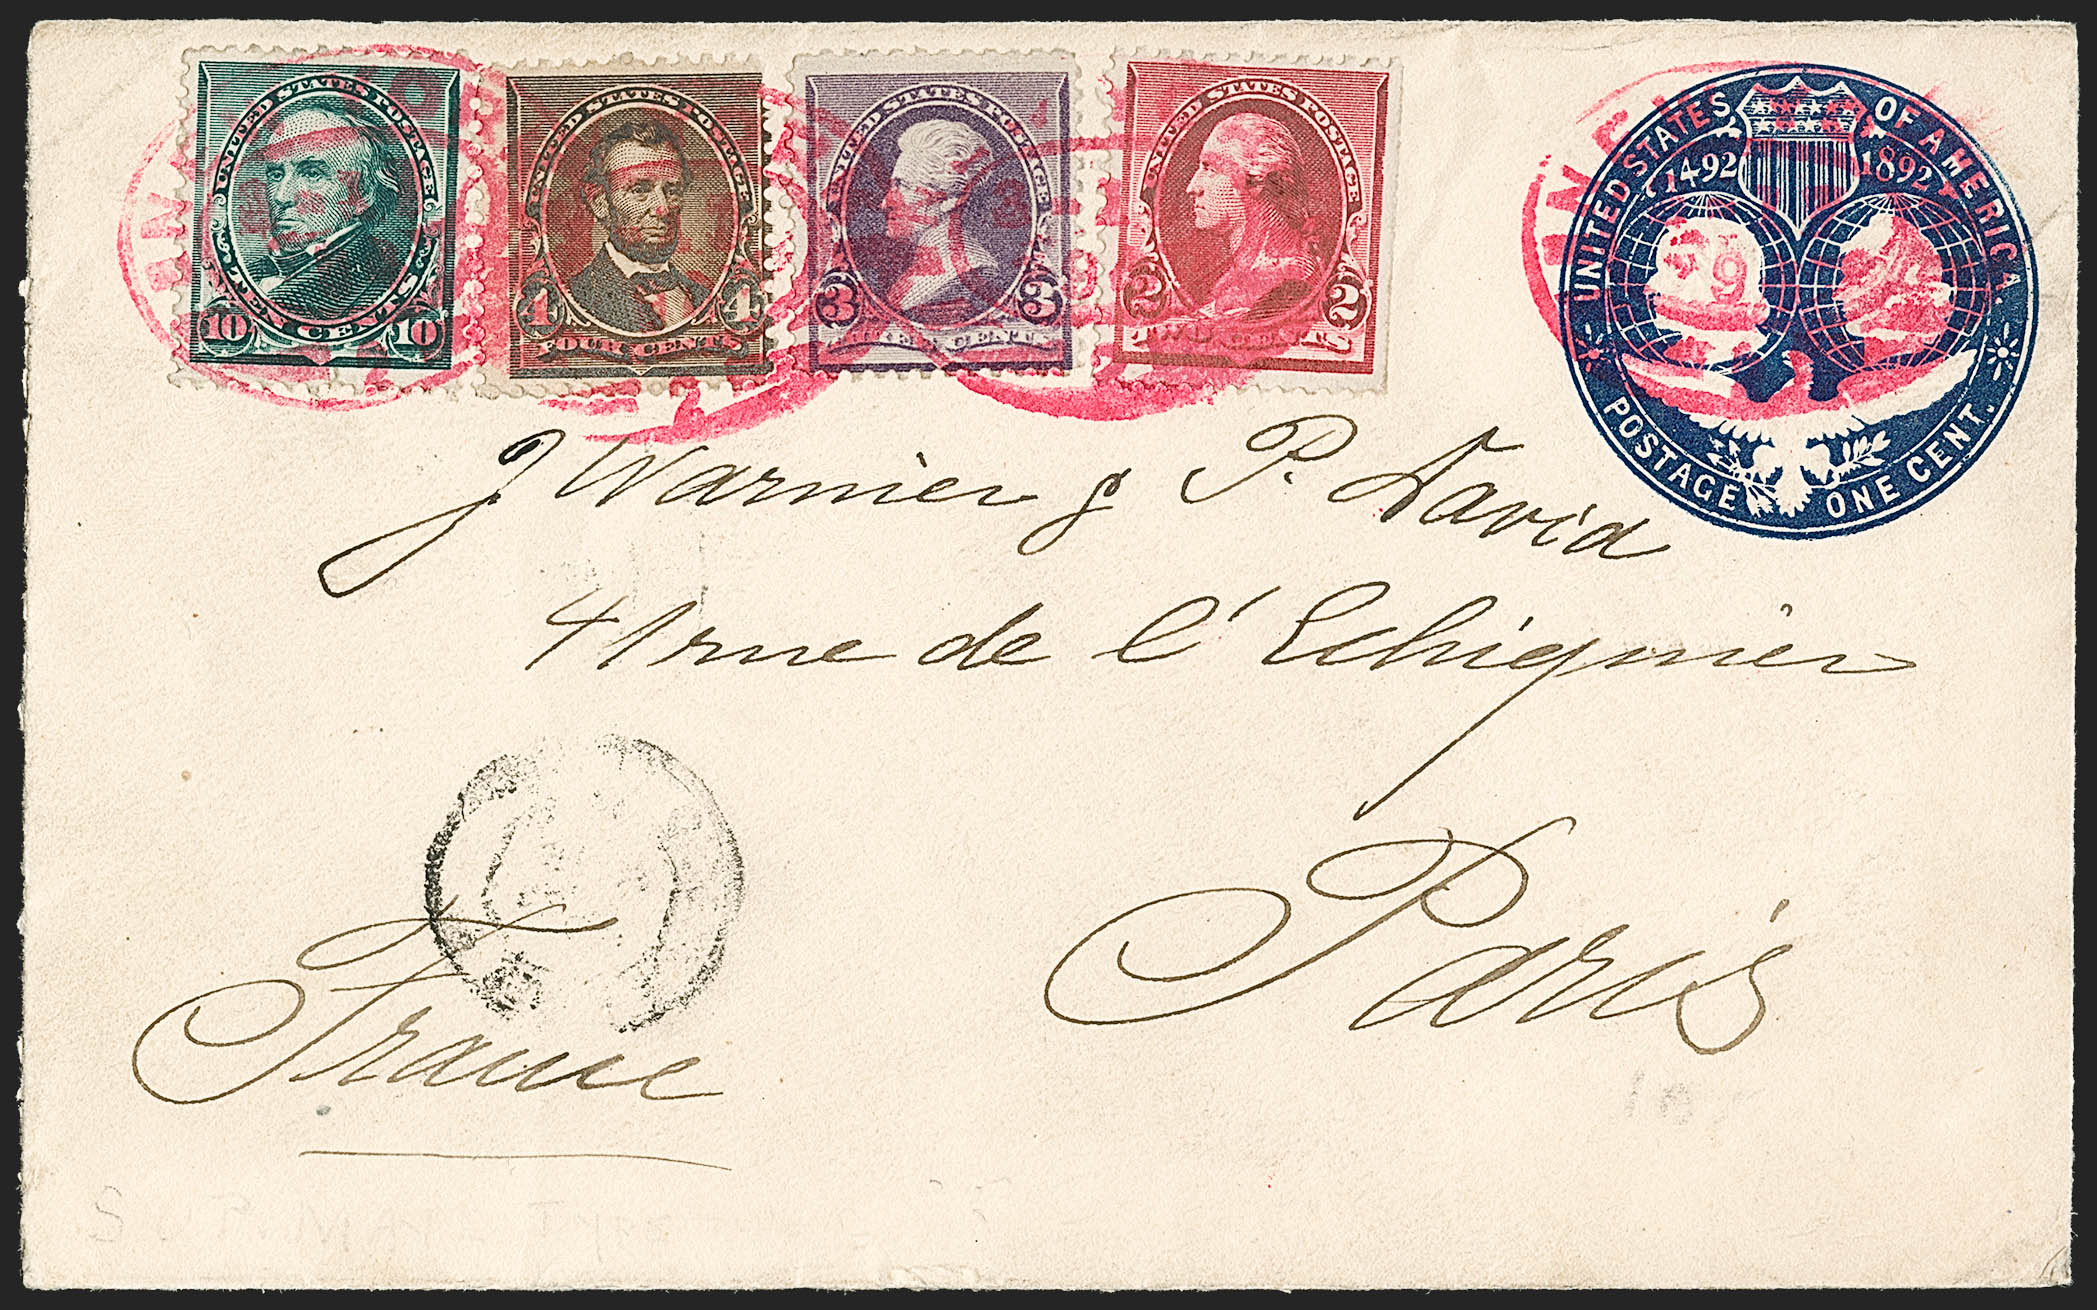 UNITED STATES POSTAGE
10 TEN CENTS 10
UNITED STATES POSTAGE
4 FOUR CENTS 4
UNITED STATES POSTAGE
3 CENTS 3
UNITED STATES POSTAGE
2 TWO CENTS 2
UNITED STATES OF AMERICA.
1492 1892
POSTAGE ONE CENT.
9
J Warnier & P. David
41 rue de l'Echiquier
Paris
France